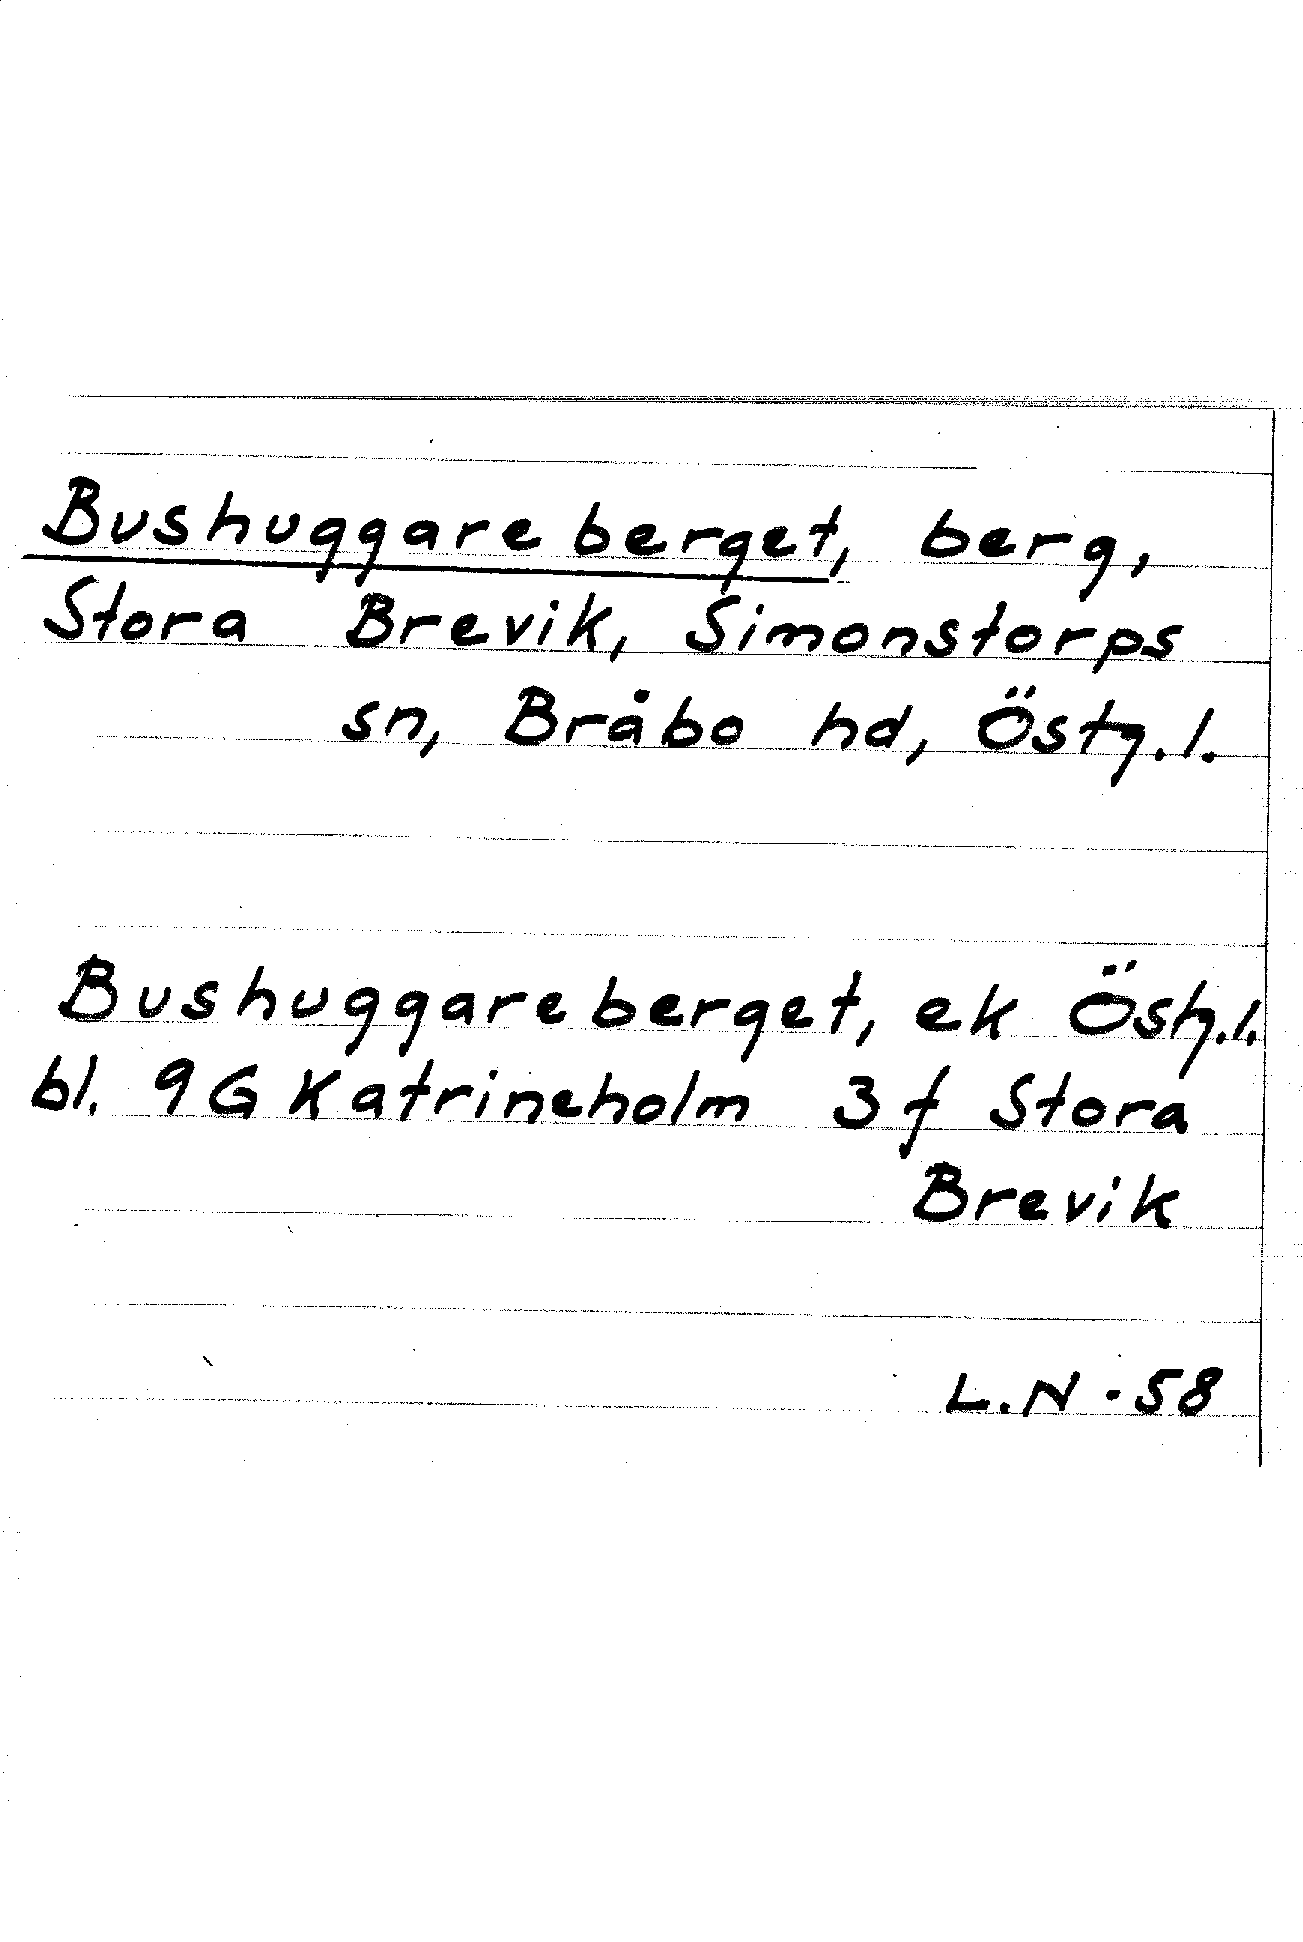 Bushuggareberget, berg,
Stora Brevik, Simonstorps
sn, Bråbo hd, Östg.l.
Bushuggareberget, ek Östg.l.
bl. 9G Katrineholm 3f Stora
Brevik
L.N -58